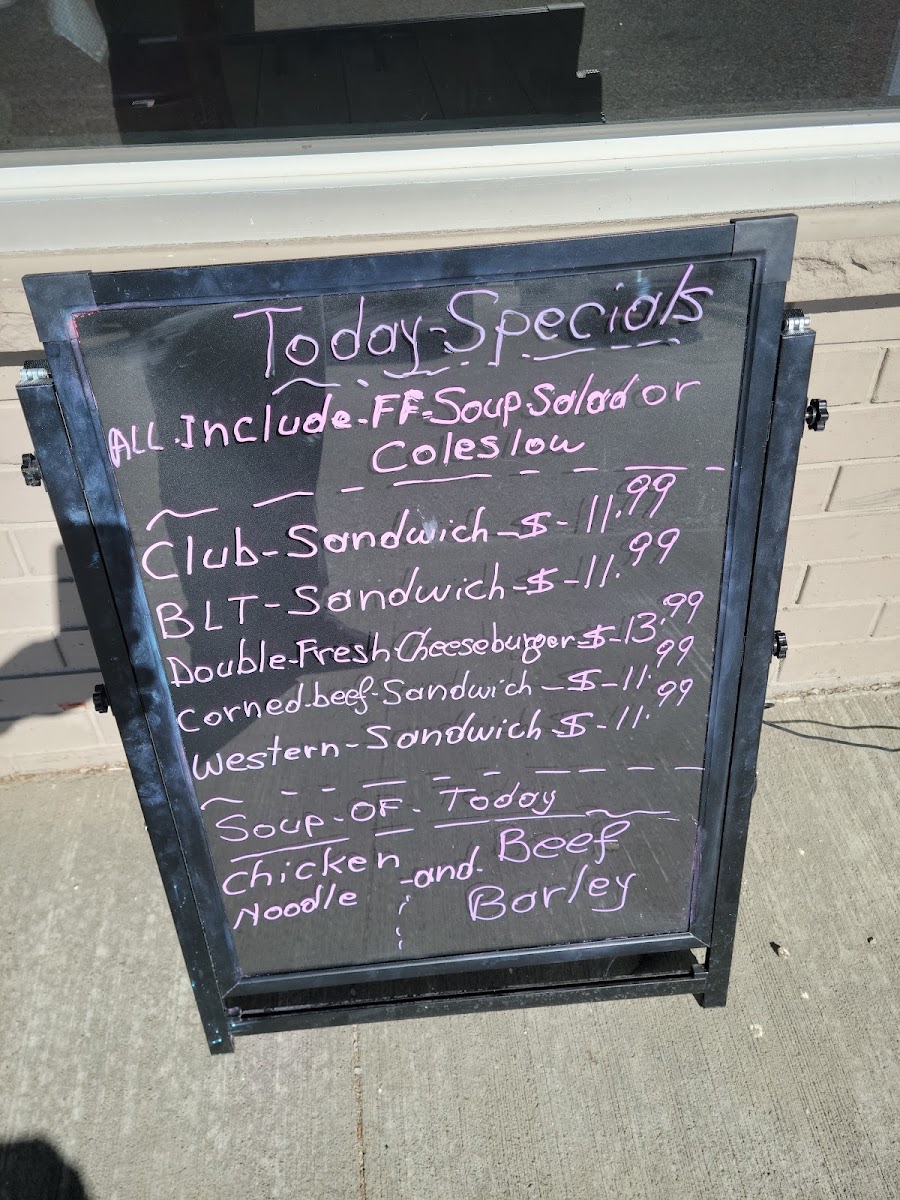 Today-Specials
ALL.Include-FF-Soup-Salad or
Coleslow
Club-Sandwich-$-11.99
BLT-Sandwich-$-11.99
Double-Fresh-Cheeseburger-$-13.99
Corned-beef-Sandwich-$-11.99
Western-Sandwich-$-11.99
Soup-OF-Today
Chicken -and- Beef
Noodle Barley